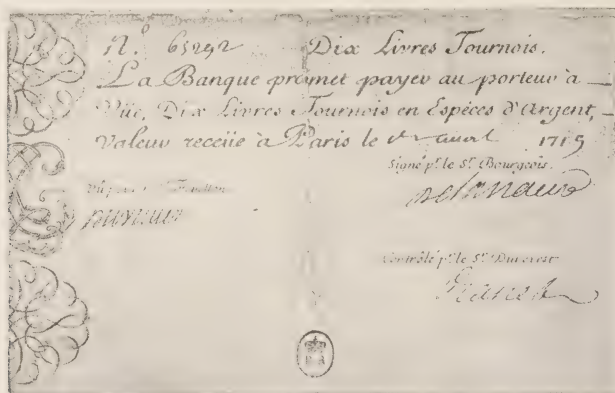 N.º 65292 Dix Livres Tournois.
La Banque promet payer au porteur à
Vüe, Dix Livres Tournois en Espèces d'Argent,
Valeur receüe à Paris le 1719
Signé p.r le S.r Bourgeois.
Vû p.r le S.r Fenellon
Controllé p.r le S.r Durevest